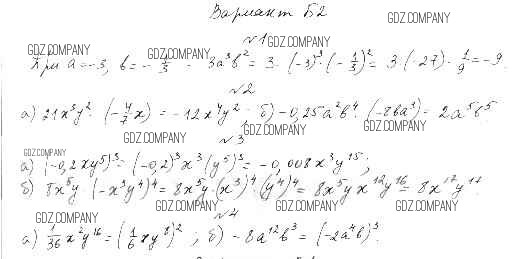 Вариант Б2
GDZ.COMPANY
№1 GDZ.COMPANY
GDZ.COMPANY GDZ.COMPANY
При a = -3, b = -1/3 3a³b² = 3 · (-3)³ · (-1/3)² = 3 · (-27) · 1/9 = -9.
№2
а) 21x³y² · (-4/7 x) = -12x⁴y². б) -0,25a²b⁴ · (-8ba³) = 2a⁵b⁵
GDZ.COMPANY GDZ.COMPANY
№3
GDZ.COMPANY
а) (-0,2xy⁵)³ = (-0,2)³x³(y⁵)³ = -0,008x³y¹⁵;
б) 8x⁵y (-x³y⁴)⁴ = 8x⁵y · (x³)⁴ · (y⁴)⁴ = 8x⁵y x¹²y¹⁶ = 8x¹⁷y¹⁷.
GDZ.COMPANY GDZ.COMPANY GDZ.COMPANY GDZ.COMPANY
№4
а) 1/36 x²y¹⁶ = (1/6 xy⁸)²; б) -8a¹²b³ = (-2a⁴b)³.
GDZ.COMPANY GDZ.COMPANY